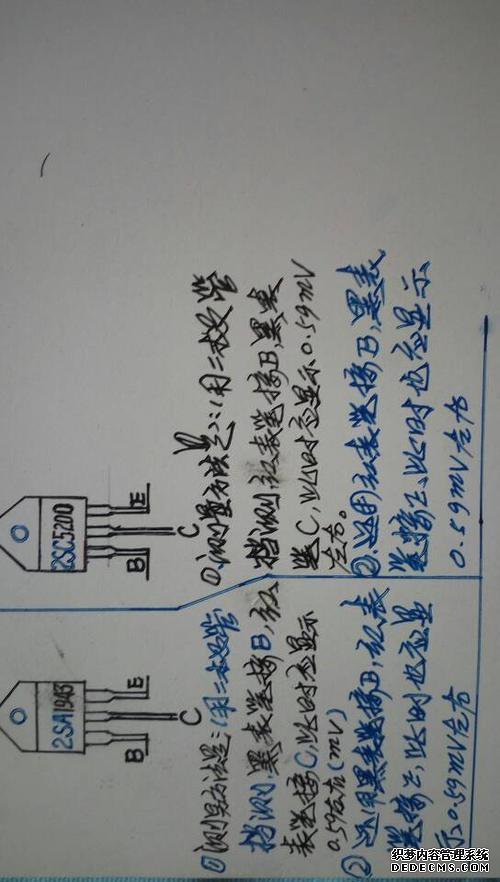 2SA1943
B
C
E
①测量方法是:(用二极管
档测)黑表笔接B,红
表笔接C,此时应显示
0.59左右(mV)
②还用黑表笔接B,红表
笔接E,此时也应显
示0.59mV左右
2SC5200
B
C
E
①.测量方法是:(用二极管
档测)红表笔接B,黑表
笔C,此时应显示0.59mV
左右。
②.还用红表笔接B,黑表
笔接E,此时也应显示
0.59mV左右
织梦内容管理系统
DEDECMS.COM